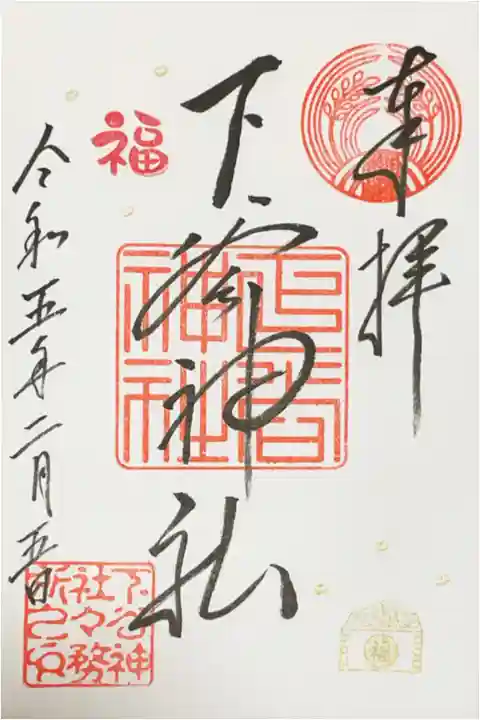 奉拝
下谷神社
下谷
神社
福
令和五年二月五日
下谷神
社々務
所之印
福